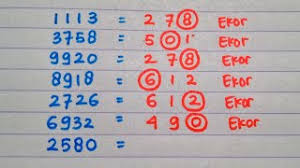 1113 = 278 Ekor
3758 = 501 Ekor
9920 = 278 Ekor
8918 = 612 Ekor
2726 = 612 Ekor
6932 = 490 Ekor
2580 =